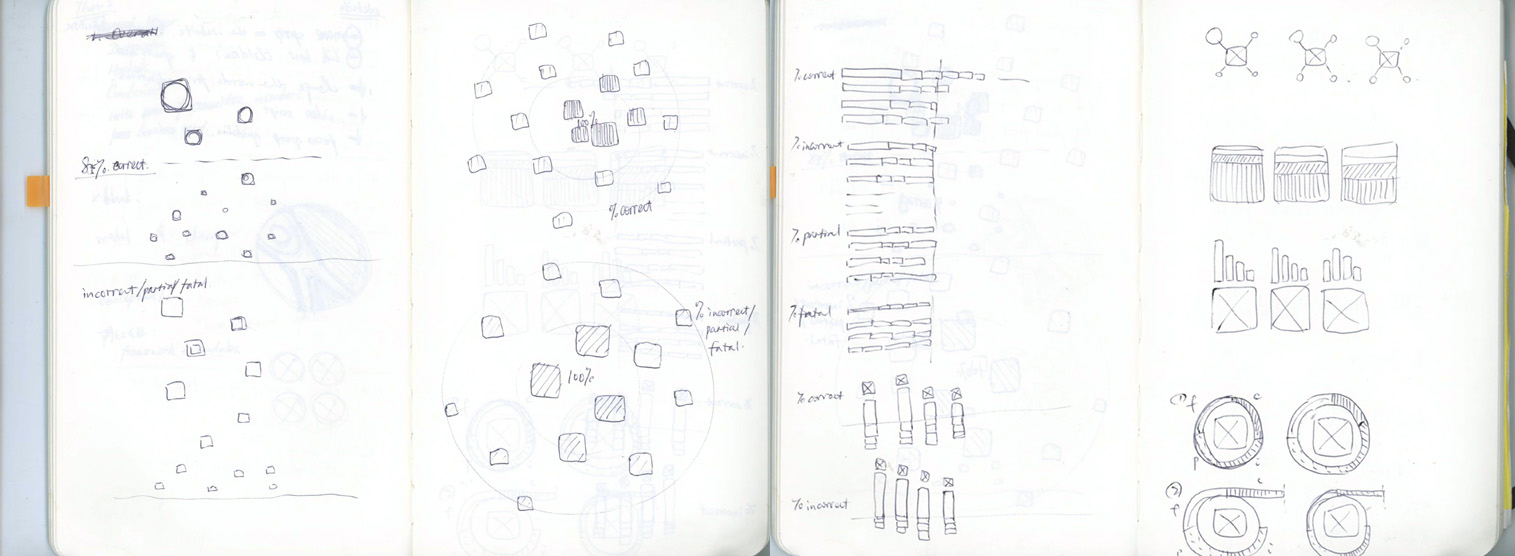 85% correct.
incorrect/partial/fatal
100%
% correct
% incorrect/
partial/
fatal.
100%
% correct
% incorrect
% partial
% fatal
% correct
% incorrect
(1) f c
p i
(2) c
f
p i